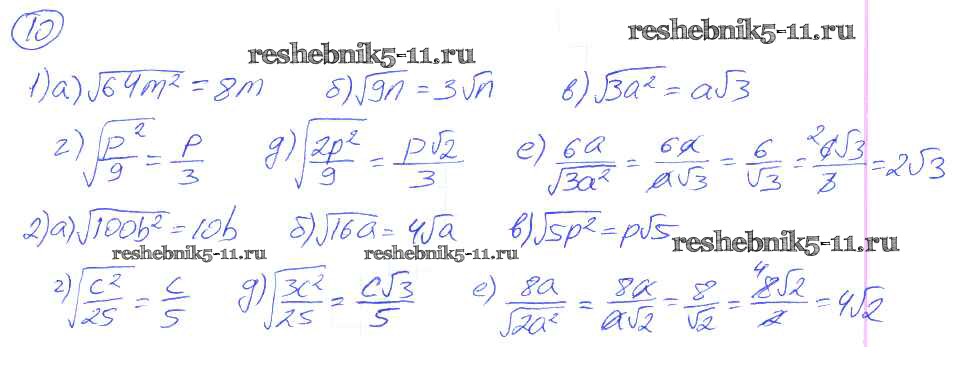 10
reshebnik5-11.ru
reshebnik5-11.ru
1) а) √64m² = 8m б) √9n = 3√n в) √3a² = a√3
г) √(p²/9) = p/3 д) √(2p²/9) = p√2/3 е) 6a/√3a² = 6a/a√3 = 6/√3 = 2 6√3/3 = 2√3
2) а) √100b² = 10b б) √16a = 4√a в) √5p² = p√5
reshebnik5-11.ru reshebnik5-11.ru reshebnik5-11.ru
г) √(c²/25) = c/5 д) √(3c²/25) = c√3/5 е) 8a/√2a² = 8a/a√2 = 8/√2 = 4 8√2/2 = 4√2